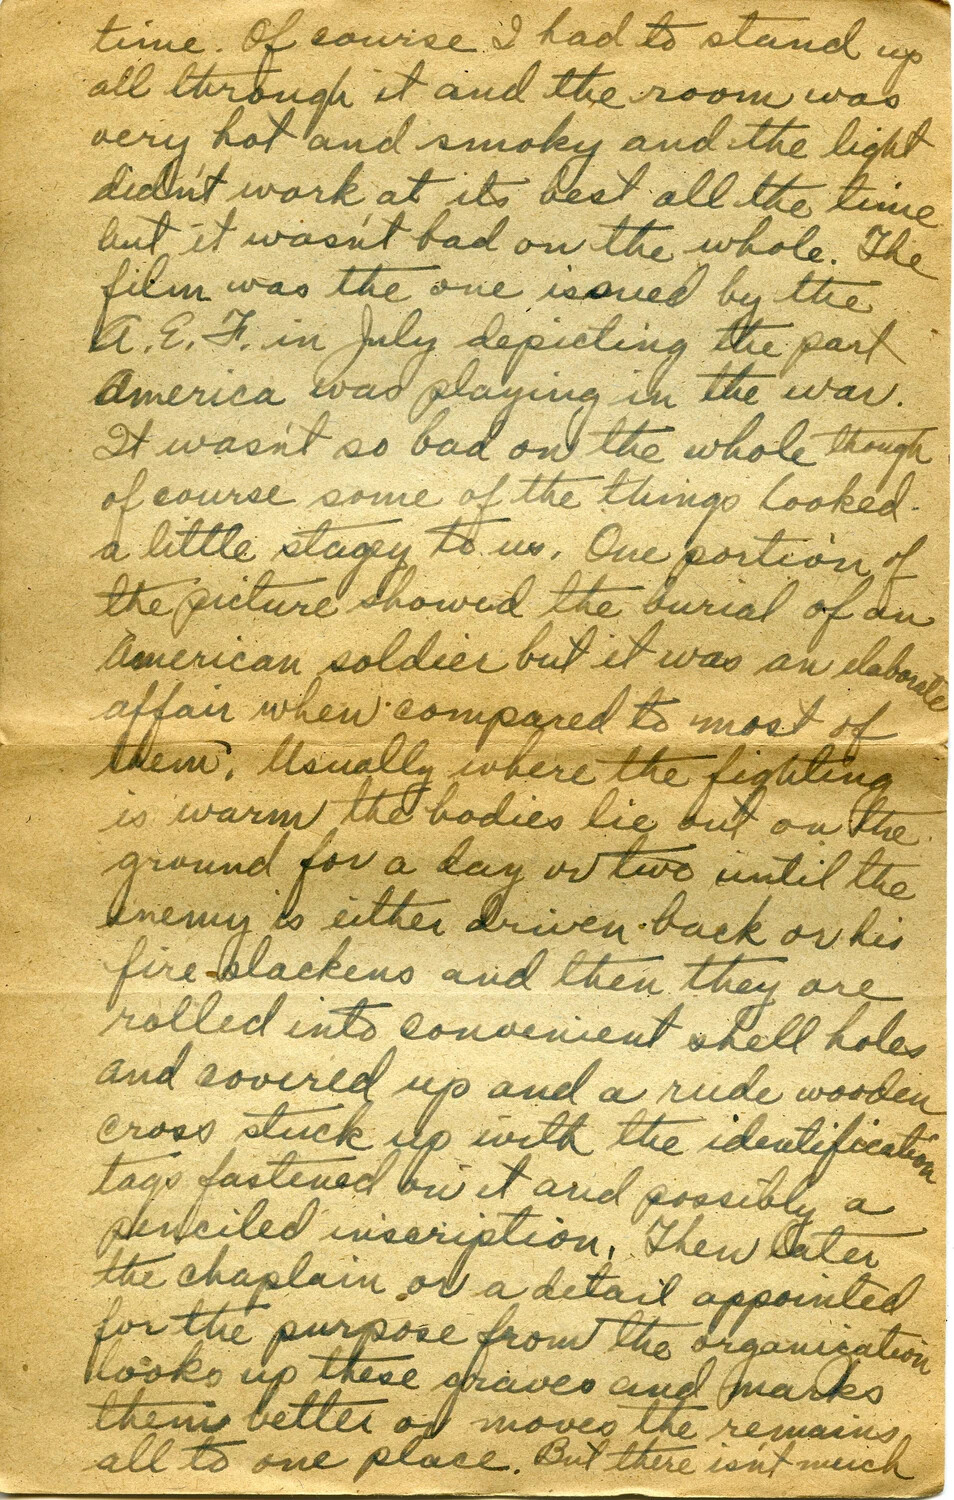 time. Of course I had to stand up
all through it and the room was
very hot and smoky and the light
didn't work at its best all the time
but it wasn't bad on the whole. The
film was the one issued by the
A.E.F. in July depicting the part
America was playing in the war.
It wasn't so bad on the whole though
of course some of the things looked
a little stagey to us. One portion of
the picture showed the burial of an
American soldier but it was an elaborate
affair when compared to most of
them. Usually where the fighting
is warm the bodies lie out on the
ground for a day or two until the
enemy is either driven back or his
fire slackens and then they are
rolled into convenient shell holes
and covered up and a rude wooden
cross stuck up with the identification
tags fastened on it and possibly a
penciled inscription. Then later
the chaplain or a detail appointed
for the purpose from the organization
looks up these graves and marks
them better or moves the remains
all to one place. But there isn't much